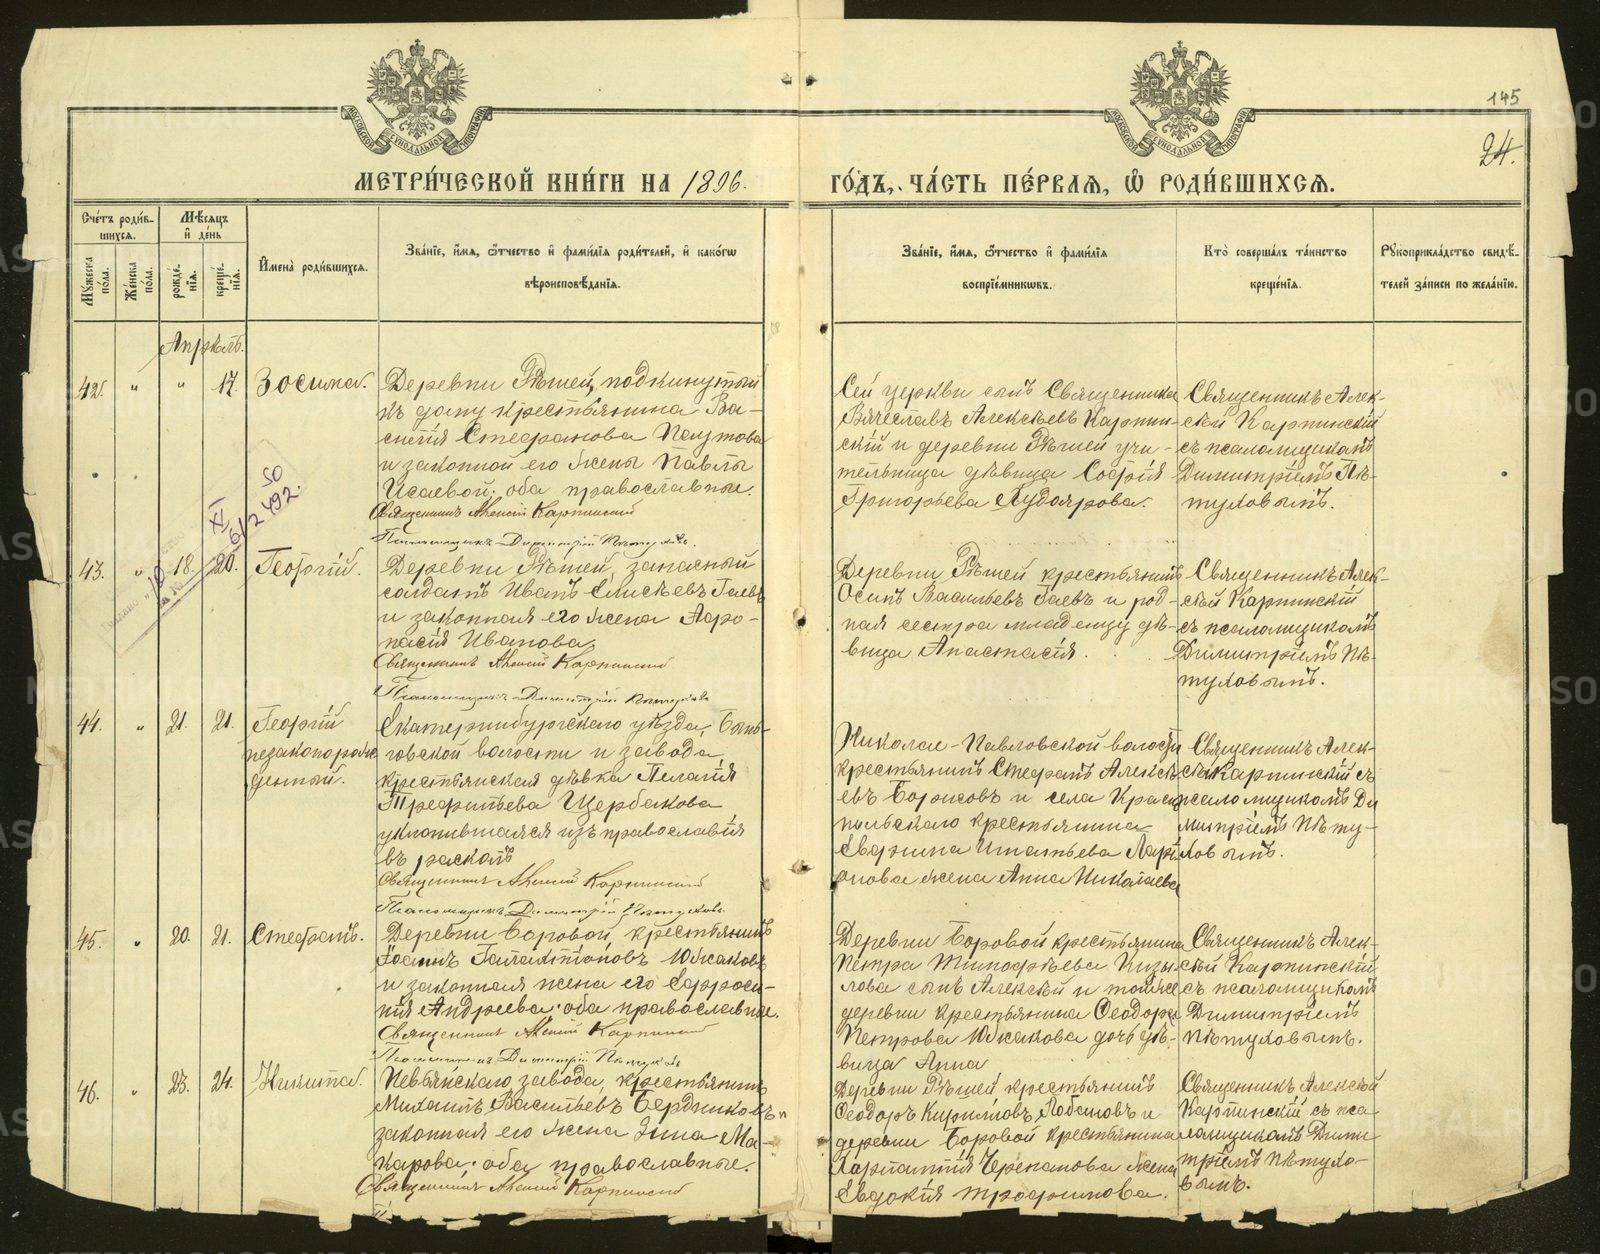 145
24.
МОСКОВСКОЙ СѴНОДАЛЬНОЙ ТИПОГРАФІИ
МОСКОВСКОЙ СѴНОДАЛЬНОЙ ТИПОГРАФІИ
МЕТРИ́ЧЕСКОЙ КНИ́ГИ НА 1896.
ГО́ДЪ, ЧА́СТЬ ПЕ́РВАѦ, Ѡ҆ РОДИ́ВШИХСѦ.
Сче́тъ роди́в-
шихсѧ.
Мꙋ́жеска по́ла.
Же́нска по́ла.
Мѣ́сѧцъ
и҆ де́нь
рожде́-
нїѧ.
креще́-
нїѧ.
И҆мена̀ роди́вшихсѧ.
Зва́нїе, и҆́мѧ, ѻ҆́тчество и҆ фами́лїѧ роди́телей, и҆ како́гѡ
вѣроисповѣ́данїѧ.
Зва́нїе, и҆́мѧ, ѻ҆́тчество и҆ фами́лїѧ
воспрїе́мникѡвъ.
Кто̀ соверша́лъ та́инство
креще́нїѧ.
Рꙋкоприкла́дство свидѣ́-
телей за́писи по жела́нїю.
Апрѣль.
42. " " 17. Зосима.
Деревни Рѣшей, подкинутый
къ дому крестьянина Ва-
силія Стефанова Полутова
и законной его жены Павлы
Исаевой; оба православные.
Священникъ Алексій Карпинскій
Псаломщикъ Димитрій Пѣтуховъ.
Сей церкви сынъ Священника
Вячеславъ Алексѣевъ Карпин-
скій и деревни Рѣшей учи-
тельница дѣвица Софія
Григорьева Кудоярова.
Священникъ Алек-
сѣй Карпинскій
съ псаломщикомъ
Димитріемъ Пѣ-
туховымъ.
43. " 18. 20. Георгій.
Деревни Рѣшей, запасный
солдатъ Иванъ Елисѣевъ Гаевъ
и законная его жена Афо-
насія Иванова
Священникъ Алексій Карпинскій
Псаломщикъ Димитрій Пѣтуховъ
Деревни Рѣшей крестьянинъ
Осипъ Васильевъ Гаевъ и род-
ная сестра младенцу дѣ-
вица Анастасія.
Священникъ Алек-
сѣй Карпинскій
съ псаломщикомъ
Димитріемъ Пѣ-
туховымъ.
44. " 21. 21. Георгій
незаконорож-
денный.
Екатеринбургскаго уѣзда, Бынь-
говской волости и завода
крестьянская дѣвка Пелагія
Трефильева Щербакова
уклонившаяся изъ православія
въ расколъ
Священникъ Алексій Карпинскій
Псаломщикъ Димитрій Пѣтуховъ
Николае-Павловской волости
крестьянинъ Стефанъ Алексѣ-
евъ Борисовъ и села Красно-
польскаго крестьянина
Евфима Игнатьева Лари-
онова жена Анна Николаева
Священникъ Алек-
сѣй Карпинскій съ
псаломщикомъ Ди
митріемъ Пѣту-
ховымъ.
45. " 20. 21. Стефанъ.
Деревни Боровой, крестьянинъ
Іосифъ Галактіоновъ Южаковъ
и законная жена его Ефроси-
нія Андреева; оба православные.
Священникъ Алексій Карпинскій
Псаломщикъ Димитрій Пѣтуховъ
Деревни Боровой крестьянина
Петра Тимофѣева Кизи-
лова сынъ Алексѣй и той же
деревни крестьянина Феодора
Петрова Южакова дочь дѣ-
вица Анна
Священникъ Алек-
сѣй Карпинскій
съ псаломщикомъ
Димитріемъ
Пѣтуховымъ.
46. " 23. 24. Никита.
Невьянскаго завода, крестьянинъ
Михаилъ Васильевъ Бердниковъ и
законная его жена Анна Ма-
карова; оба православные.
Священникъ Алексій Карпинскій
Деревни Рѣшей крестьянинъ
Феодоръ Кириловъ Лобановъ и
деревни Боровой крестьянина
Харлампія Черепанова жена
Евдокія Трофимова.
Священникъ Алексѣй
Карпинскій съ пса
ломщикомъ Дими
тріемъ Пѣтухо-
вымъ.